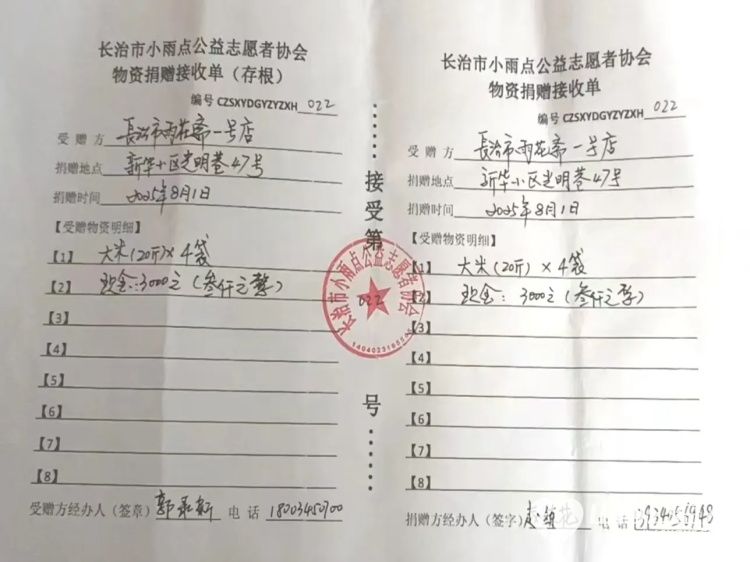 长治市小雨点公益志愿者协会
物资捐赠接收单（存根）
编号 CZSXYDGYZYZXH 022
受赠方 長治市雨花斋一号店
捐赠地点 新华小区光明巷47号
捐赠时间 2025年8月1日
【受赠物资明细】
【1】 大米(20斤)×4袋
【2】 现金:3000元(叁仟元整)
【3】
【4】
【5】
【6】
【7】
【8】
受赠方经办人（签章） 电话
接受第
022
号
长治市小雨点公益志愿者协会
长治市小雨点公益志愿者协会
物资捐赠接收单
编号 CZSXYDGYZYZXH 022
受赠方 長治市雨花斋一号店
捐赠地点 新华小区光明巷47号
捐赠时间 2025年8月1日
【受赠物资明细】
【1】 大米(20斤)×4袋
【2】 现金:3000元(叁仟元整)
【3】
【4】
【5】
【6】
【7】
【8】
捐赠方经办人（签字） 电话